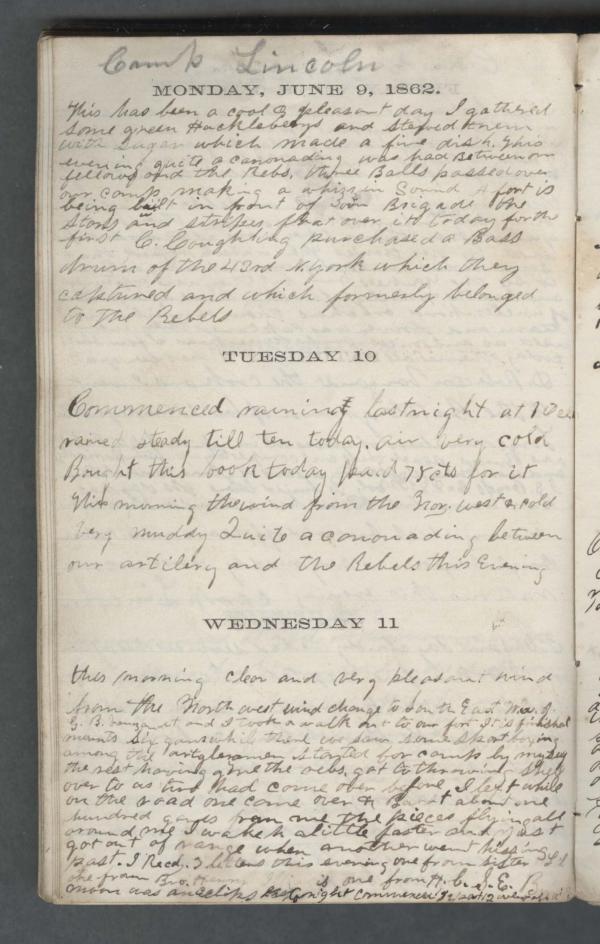 Camp Lincoln
MONDAY, JUNE 9, 1862.
This has been a cool & pleasant day I gathered
some green Huckleberys and stewed them
with sugar which made a fine dish. This
evening quite a canonading was had Between our
fellows and the Rebs, three Balls passed over
our camp making a whizzin Sound A fort is
being built in front of our Brigade the
stars and stripes float over it to day for the
first C. Coughling purchased a Bass
drum of the 43rd N. York which they
captured and which formerly belonged
to the Rebels
TUESDAY 10
Commenced raining last night at 1 Oc
rained steady till ten today. air very cold
Bought this book today paid 75 cts for it
This morning the wind from the Nor. west & cold
very muddy Quite a cononading between
our artilery and the Rebels this Evening
WEDNESDAY 11
this morning clear and very pleasant wind
from the North west wind change to South East
G. B. and I took a walk out to our fort It is finished
mounts six guns while there we saw some
among the started for camp by my self
the rest having gone the rebs. got to throwing shell
over to us two had come over before I left while
on the road one come over & Burst about one
hundred yards from me the pieces flying all
around me I walked a little faster and just
got out of range when another went hissing
past. I Recd. 3 letters this evening one from sister
one from Bro. one from H. C. J. E.
moon was an eclips to night commenced